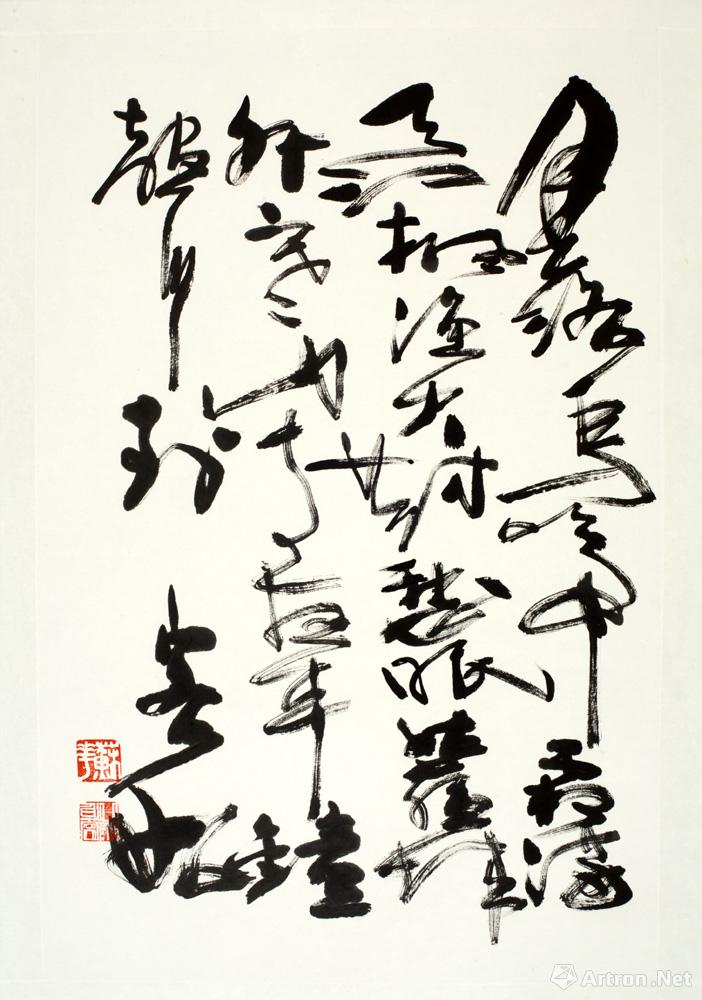 月落烏啼霜滿
天江楓漁火對愁眠姑蘇城
外寒山寺夜半鐘
聲到客船
Artron.Net